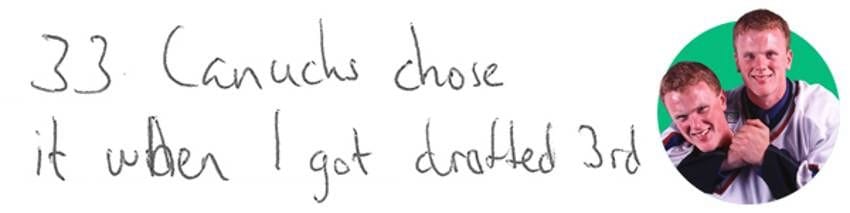 33. Canucks chose
it when I got drafted 3rd